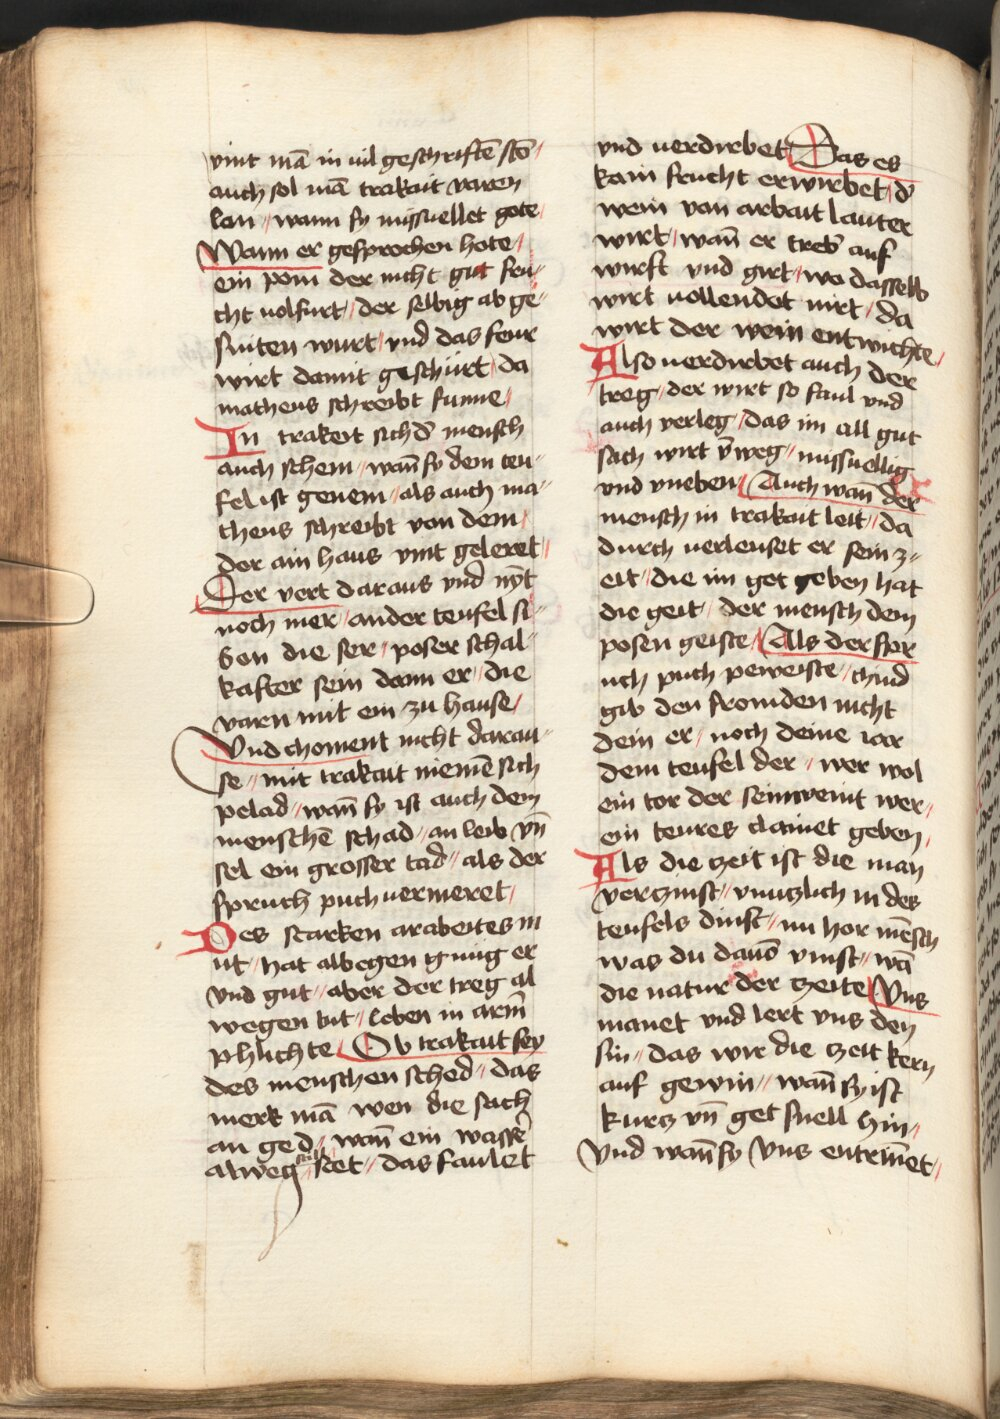 vint mā in uil geschriftē stō /
auch sol mā trakait varen
lan // wann sy missuellet gote /
Wann er gesprochen hote /
ein pom der nicht gut fru /
cht uolfurt / der selbig ab ge /
sniten wurt / vnd das feur
wirt damit geschürt / da
matheus schreibt funne /
In trakeit sich d' mensch
auch schem // wañ sy dem teu /
fel ist genem // als auch ma /
theus schreibt von dem /
der ain haus vint geleret //
Der vert daraus vnd nÿt
noch mer / ander teufel si /
ben die ser / poser schal /
kafter sein dann er // die
varn mit ein zu hause /
Vnd choment nicht darau /
se // mit trakait niemē sich
pelad // wañ sy ist auch dem
menschē schad // an leib vñ
sel ein grosser tad // als der
spruch puch uermeret /
Des starken arabeites in
üt / hat albegen gnug er
vnd gut // aber der treg al
wegen tut / leben in arm̄
phlichte / Ob trakait sey
des menschen sched // das
merk mā wen die sach
an ged // wañ ein wasser
alweg still stet // das faulet
vnd uerdirbet / Das es
kain frucht erwirbet / d'
wein von arbait lauter
wirt / wañ er treb' auf
wurft vnd girt / wo dasselb
wirt uollendet nirt / da
wirt der wein entwichte /
Also uerdirbet auch der
treg / der wirt so faul vnd
auch verleg / das im all gut
sach wirt v̄weg // missuellig
vnd vneben / Auch wañ der
mensch in trakait leit // da
durch uerleuset er sein z /
eit // die im got geben hat
die geit / der mensch dem
posen geiste / Als der spr
uch puch peweiste / chind
gib den fromden nicht
dein er / noch deine iar
dem teufel der // wer wol
ein tor der sein weint wer /
ein teures clainet geben /
Als die zeit ist die man
verzinst // vnuczlich in des
teufels dinst // nu hor mēsch
was du dauō vinst // wā
die natur der czeite / Vns
manet vnd lert vns den
sin // das wir die czeit kern
auf gewin // wañ sy ist
kurcz vñ get snell hin /
Vnd wañ sy vns entrin̄et /